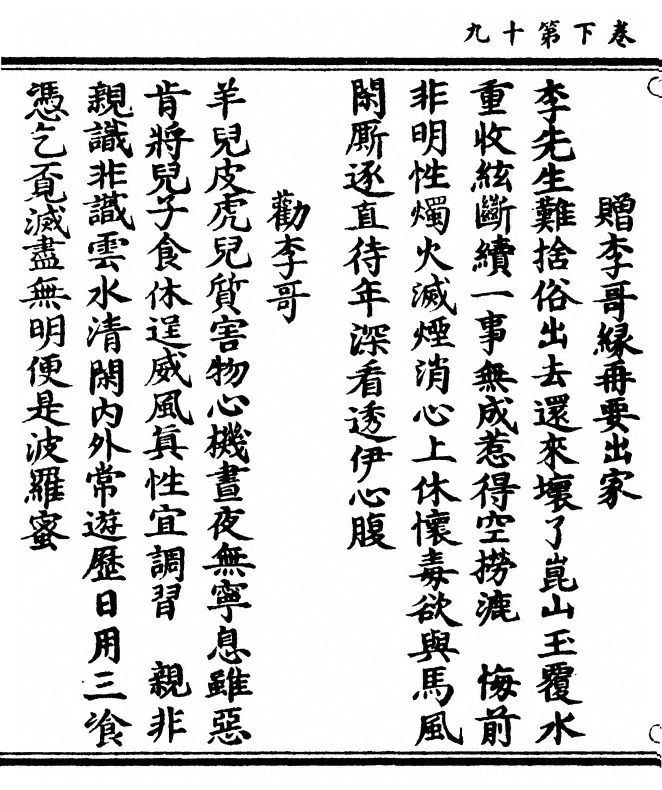 卷下第十九
贈李哥緣再要出家
李先生難捨俗出去還來壞了崑山玉覆水
重收絃斷續一事無成惹得空撈漉　悔前
非明性燭火滅煙消心上休懷毒欲與馬風
閑厮逐直待年深看透伊心腹
勸李哥
羊兒皮虎兒質害物心機晝夜無寧息雖惡
肯將兒子食休逞威風眞性宜調習　親非
親識非識雲水清閑內外常遊歷日用三飡
憑乞覔滅盡無明便是波羅蜜